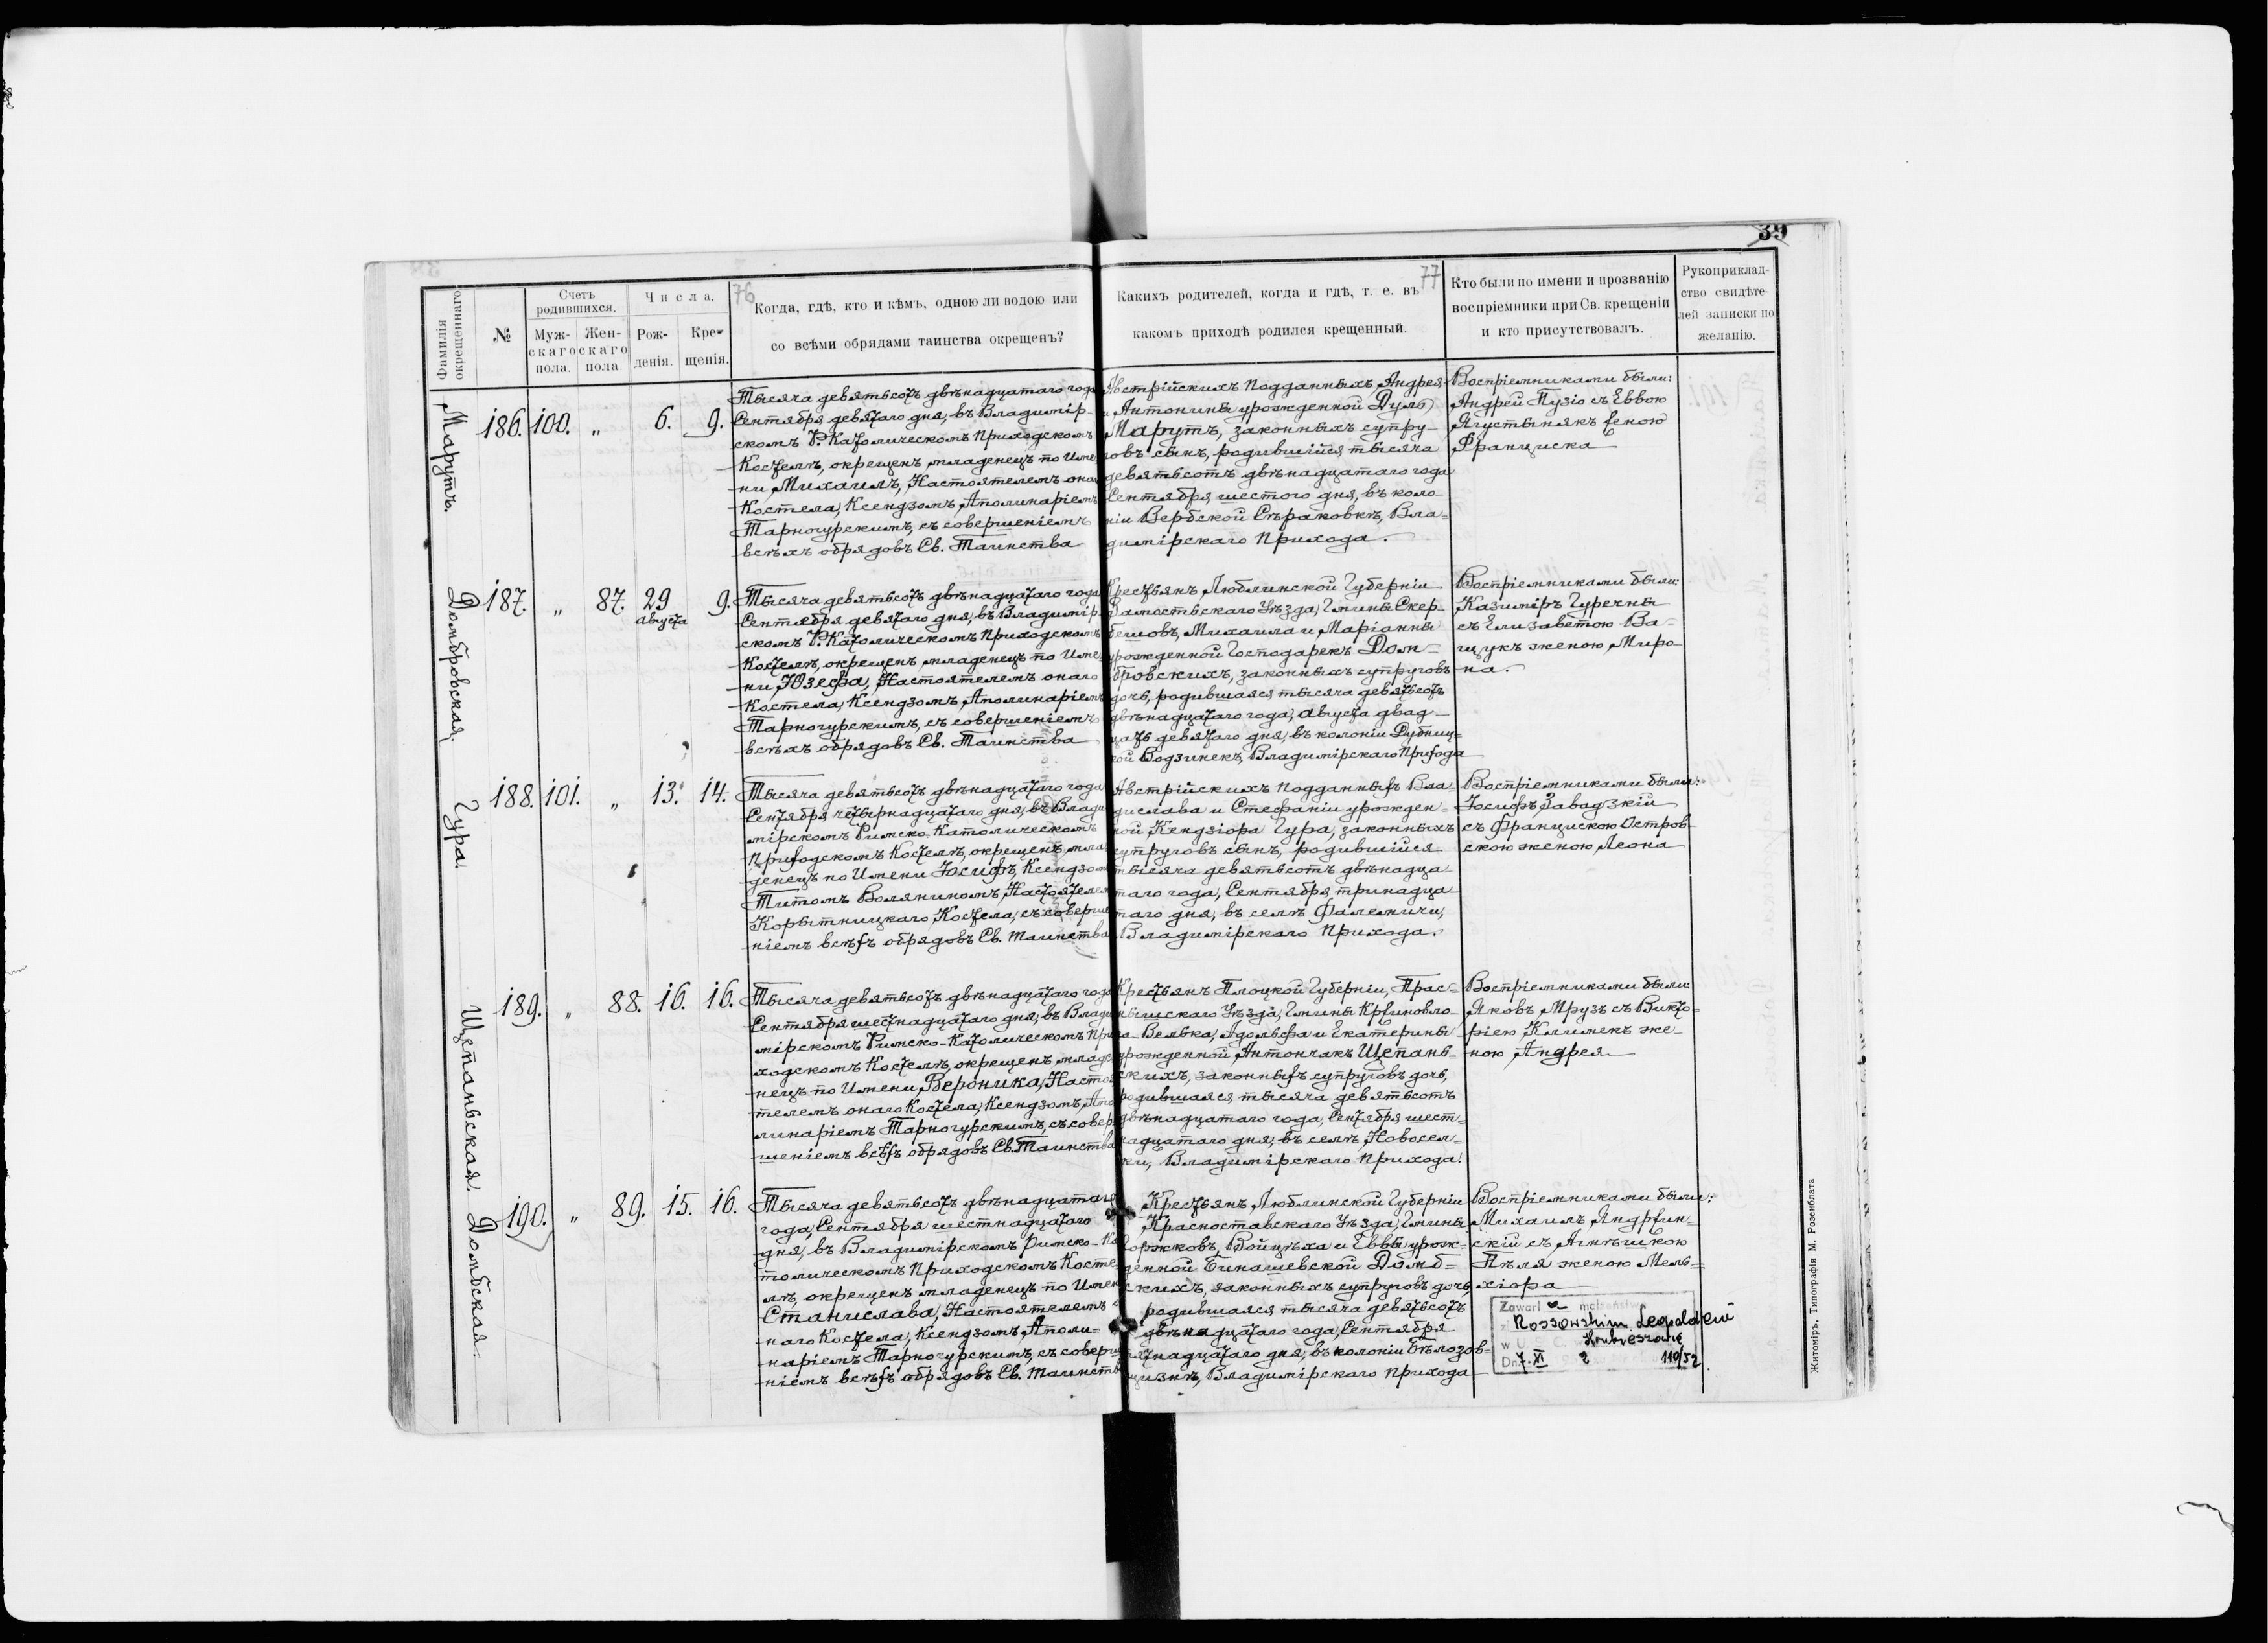 39
76
77
Фамилія окрещеннаго.
№
Счетъ родившихся.
Мужскаго пола.
Женскаго пола.
Числа.
Рожденія.
Крещенія.
Когда, гдѣ, кто и кѣмъ, одною ли водою или
со всѣми обрядами таинства окрещенъ?
Какихъ родителей, когда и гдѣ, т. е. въ
какомъ приходѣ родился крещенный.
Кто были по имени и прозванію
воспріемники при Св. крещеніи
и кто присутствовалъ.
Рукоприклад-
ство свидѣте-
лей записки по
желанію.
Марутъ.
186. 100. „ 6. 9.
Тысяча девятьсотъ двѣнадцатаго года
Сентября девятаго дня, въ Владимір-
скомъ Р. Католическомъ Приходскомъ
Костелѣ, окрещенъ младенецъ по Име-
ни Михаилъ, Настоятелемъ онаго
Костела, Ксендзомъ Аполинаріемъ
Тарногурскимъ, съ совершеніемъ
всѣхъ обрядовъ Св. Таинства
Австрійскихъ подданныхъ Андрея
и Антонины урожденной Дуль
Марутъ, законныхъ супру-
говъ сынъ, родившійся тысяча
девятьсотъ двѣнадцатаго года
Сентября, шестого дня, въ коло-
ніи Вербской Сѣраковкѣ, Вла-
димірскаго Прихода.
Воспріемниками были:
Андрей Пузіо съ Еввою
Ягустынякъ женою
Франциска
Домбровская.
187. „ 87. 29 августа 9.
Тысяча девятьсотъ двѣнадцатаго года
Сентября девятаго дня, въ Владимір-
скомъ Р. Католическомъ Приходскомъ
Костелѣ, окрещенъ младенецъ по Име-
ни Юзефа, Настоятелемъ онаго
Костела, Ксендзомъ Аполинаріемъ
Тарногурскимъ, съ совершеніемъ
всѣхъ обрядовъ Св. Таинства
Крестьянъ Люблинской Губерніи
Замостьскаго Уѣзда, Гмины Скер-
бешовъ, Михаила и Маріанны
урожденной Господарекъ Дом-
бровскихъ, законныхъ супруговъ
дочь, родившаяся тысяча девятьсотъ
двѣнадцатаго года, Августа двад-
цать девятаго дня, въ колоніи Дубниц-
кой Водзинекъ, Владимірскаго Прихода
Воспріемниками были:
Казиміръ Гуречны
съ Елизаветою Ва-
щукъ женою Миро-
на.
Гура.
188. 101. „ 13. 14.
Тысяча девятьсотъ двѣнадцатаго года
Сентября четырнадцатаго дня, въ Влади-
мірскомъ Римско-Католическомъ
Приходскомъ Костелѣ, окрещенъ мла-
денецъ по Имени Іосифъ, Ксендзомъ
Титомъ Воляниномъ, Настоятелемъ
Корытницкаго Костела, съ соверше-
ніемъ всѣхъ обрядовъ Св. Таинства.
Австрійскихъ подданныхъ Вла-
дислава и Стефаніи урожден-
ной Кендзіора Гура, законныхъ
супруговъ сынъ, родившійся
тысяча девятьсотъ двѣнадца-
таго года, Сентября, тринадца-
таго дня, въ селѣ Фалемичи,
Владимірскаго Прихода.
Воспріемниками были:
Іосифъ Завадзкій
съ Францискою Остров-
скою женою Леона
Щепаньская.
189. „ 88. 16. 16.
Тысяча девятьсотъ двѣнадцатаго года
Сентября шестнадцатаго дня, въ Влади-
мірскомъ Римско-Католическомъ При-
ходскомъ Костелѣ, окрещенъ младе-
нецъ по Имени Вероника, Настоя-
телемъ онаго Костела, Ксендзомъ Апо-
линаріемъ Тарногурскимъ, съ совер-
шеніемъ всѣхъ обрядовъ Св. Таинства
Крестьянъ Плоцкой Губерніи, Прас-
нышскаго Уѣзда, Гмины Крживовло-
га-Велька, Адольфа и Екатерины
урожденной Антончакъ Щепань-
скихъ, законныхъ супруговъ дочь,
родившаяся тысяча девятьсотъ
двѣнадцатаго года, Сентября шест-
надцатаго дня, въ селѣ Новосел-
ки, Владимірскаго Прихода.
Воспріемниками были:
Яковъ Мрузъ съ Викто-
ріею Климекъ же-
ною Андрея
Домбская.
190. „ 89. 15. 16.
Тысяча девятьсотъ двѣнадцатаго
года, Сентября шестнадцатаго
дня, въ Владимірскомъ Римско-Ка-
толическомъ Приходскомъ Косте-
лѣ, окрещенъ младенецъ по Имени
Станислава, Настоятелемъ о-
наго Костела, Ксендзомъ Аполи-
наріемъ Тарногурскимъ, съ соверше-
ніемъ всѣхъ обрядовъ Св. Таинства
Крестьянъ Люблинской Губерніи
Красноставскаго Уѣзда, Гмины
Горжковъ, Войцѣха и Еввы урож-
денной Бинашевской Домб-
скихъ, законныхъ супруговъ дочь,
родившаяся тысяча девятьсотъ
двѣнадцатаго года, Сентября
пятнадцатаго дня, въ колоніи Бѣлозов-
щизнѣ, Владимірскаго Прихода
Воспріемниками были:
Михаилъ Яндржин-
скій съ Агнѣшкою
Пѣля женою Мель-
хіора
Zawarł a małżeństwo
z Rossowskim Leopoldem
w U. S. C. Hrubieszowie
Dn. 7. XI 2 110/52
Житоміръ, Типографія М. Розенблата